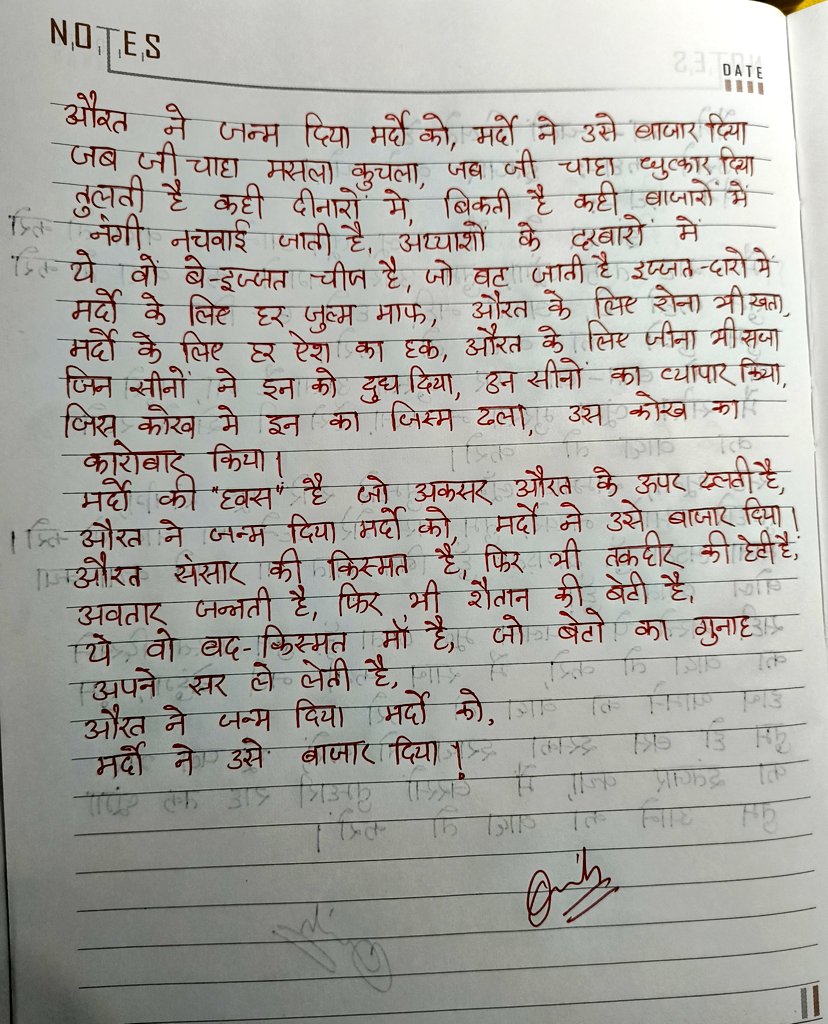 NOTES
DATE
औरत ने जन्म दिया मर्दो को, मर्दो ने उसे बाजार दिया
जब जी चाहा मसला कुचला, जब जी चाहा धुत्कार दिया
तुलती है कही दीनारों मे, बिकती है कही बाजारों में
नंगी नचवाई जाती है, अय्याशों के दरबारों में
ये वो बे-इज्जत चीज है, जो बट जाती है इज्जत-दारो में
मर्दो के लिए हर जुल्म माफ, औरत के लिए रोना भी खता,
मर्दो के लिए हर ऐश का हक, औरत के लिए जीना भी सजा
जिन सीनों ने इन को दुध दिया, उन सीनों का व्यापार किया,
जिस कोख मे इन का जिस्म ढला, उस कोख का
कारोबार किया।
मर्दो की "हवस" है जो अकसर औरत के ऊपर ढलती है,
औरत ने जन्म दिया मर्दो को, मर्दो ने उसे बाजार दिया।
औरत संसार की किस्मत है, फिर भी तकदीर की हेटी है,
अवतार जन्नती है, फिर भी शैतान की बेटी है,
ये वो बद-किस्मत माँ है, जो बेटो का गुनाह
अपने सर ले लेती है,
औरत ने जन्म दिया मर्दो को,
मर्दो ने उसे बाजार दिया।